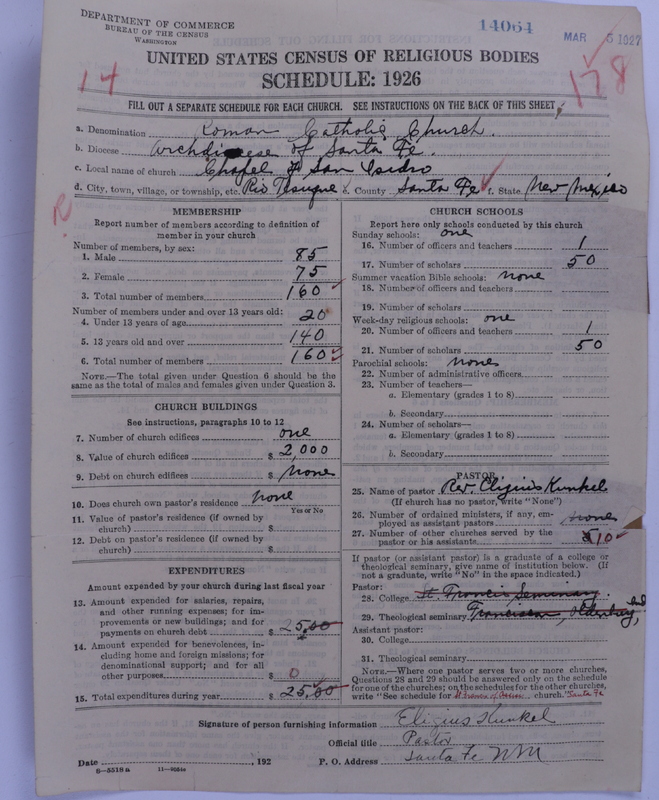 DEPARTMENT OF COMMERCE
BUREAU OF THE CENSUS
WASHINGTON
14064
MAR 5 1927
UNITED STATES CENSUS OF RELIGIOUS BODIES
SCHEDULE: 1926
14
178
FILL OUT A SEPARATE SCHEDULE FOR EACH CHURCH. SEE INSTRUCTIONS ON THE BACK OF THIS SHEET
a. Denomination Roman Catholic Church.
b. Diocese Archdiocese of Santa Fe.
c. Local name of church Chapel of San Isidro
d. City, town, village, or township, etc. Rio Tesuque County Santa Fe f. State New Mexico
R
MEMBERSHIP
Report number of members according to definition of member in your church
Number of members, by sex:
1. Male 85
2. Female 75
3. Total number of members 160
Number of members under and over 13 years old:
4. Under 13 years of age 20
5. 13 years old and over 140
6. Total number of members 160
NOTE.—The total given under Question 6 should be the same as the total of males and females given under Question 3.
CHURCH BUILDINGS
See instructions, paragraphs 10 to 12
7. Number of church edifices one
8. Value of church edifices $ 2,000
9. Debt on church edifices $ none
10. Does church own pastor's residence none
Yes or No
11. Value of pastor's residence (if owned by church) $
12. Debt on pastor's residence (if owned by church) $
EXPENDITURES
Amount expended by your church during last fiscal year
13. Amount expended for salaries, repairs, and other running expenses; for improvements or new buildings; and for payments on church debt $ 25,00
14. Amount expended for benevolences, including home and foreign missions; for denominational support; and for all other purposes $ 0
15. Total expenditures during year $ 25,00
CHURCH SCHOOLS
Report here only schools conducted by this church
Sunday schools: one
16. Number of officers and teachers 1
17. Number of scholars 50
Summer vacation Bible schools: none
18. Number of officers and teachers
19. Number of scholars
Week-day religious schools: one
20. Number of officers and teachers 1
21. Number of scholars 50
Parochial schools: none
22. Number of administrative officers
23. Number of teachers—
a. Elementary (grades 1 to 8)
b. Secondary
24. Number of scholars—
a. Elementary (grades 1 to 8)
b. Secondary
PASTOR
25. Name of pastor Rev. Eligius Kunkel
(If church has no pastor, write "None")
26. Number of ordained ministers, if any, employed as assistant pastors none
27. Number of other churches served by the pastor or his assistants 10
If pastor (or assistant pastor) is a graduate of a college or theological seminary, give name of institution below. (If not a graduate, write "No" in the space indicated.)
Pastor:
28. College St. Francis Seminary.
29. Theological seminary Franciscan, Oldenburg, Ind
Assistant pastor:
30. College
31. Theological seminary
NOTE.—Where one pastor serves two or more churches, Questions 28 and 29 should be answered only on the schedule for one of the churches; on the schedules for the other churches, write "See schedule for St Francis of Assisi church." Santa Fe
Signature of person furnishing information Eligius Kunkel
Official title Pastor
Date , 192 P. O. Address Santa Fe NM
8—5518a 11—9054a